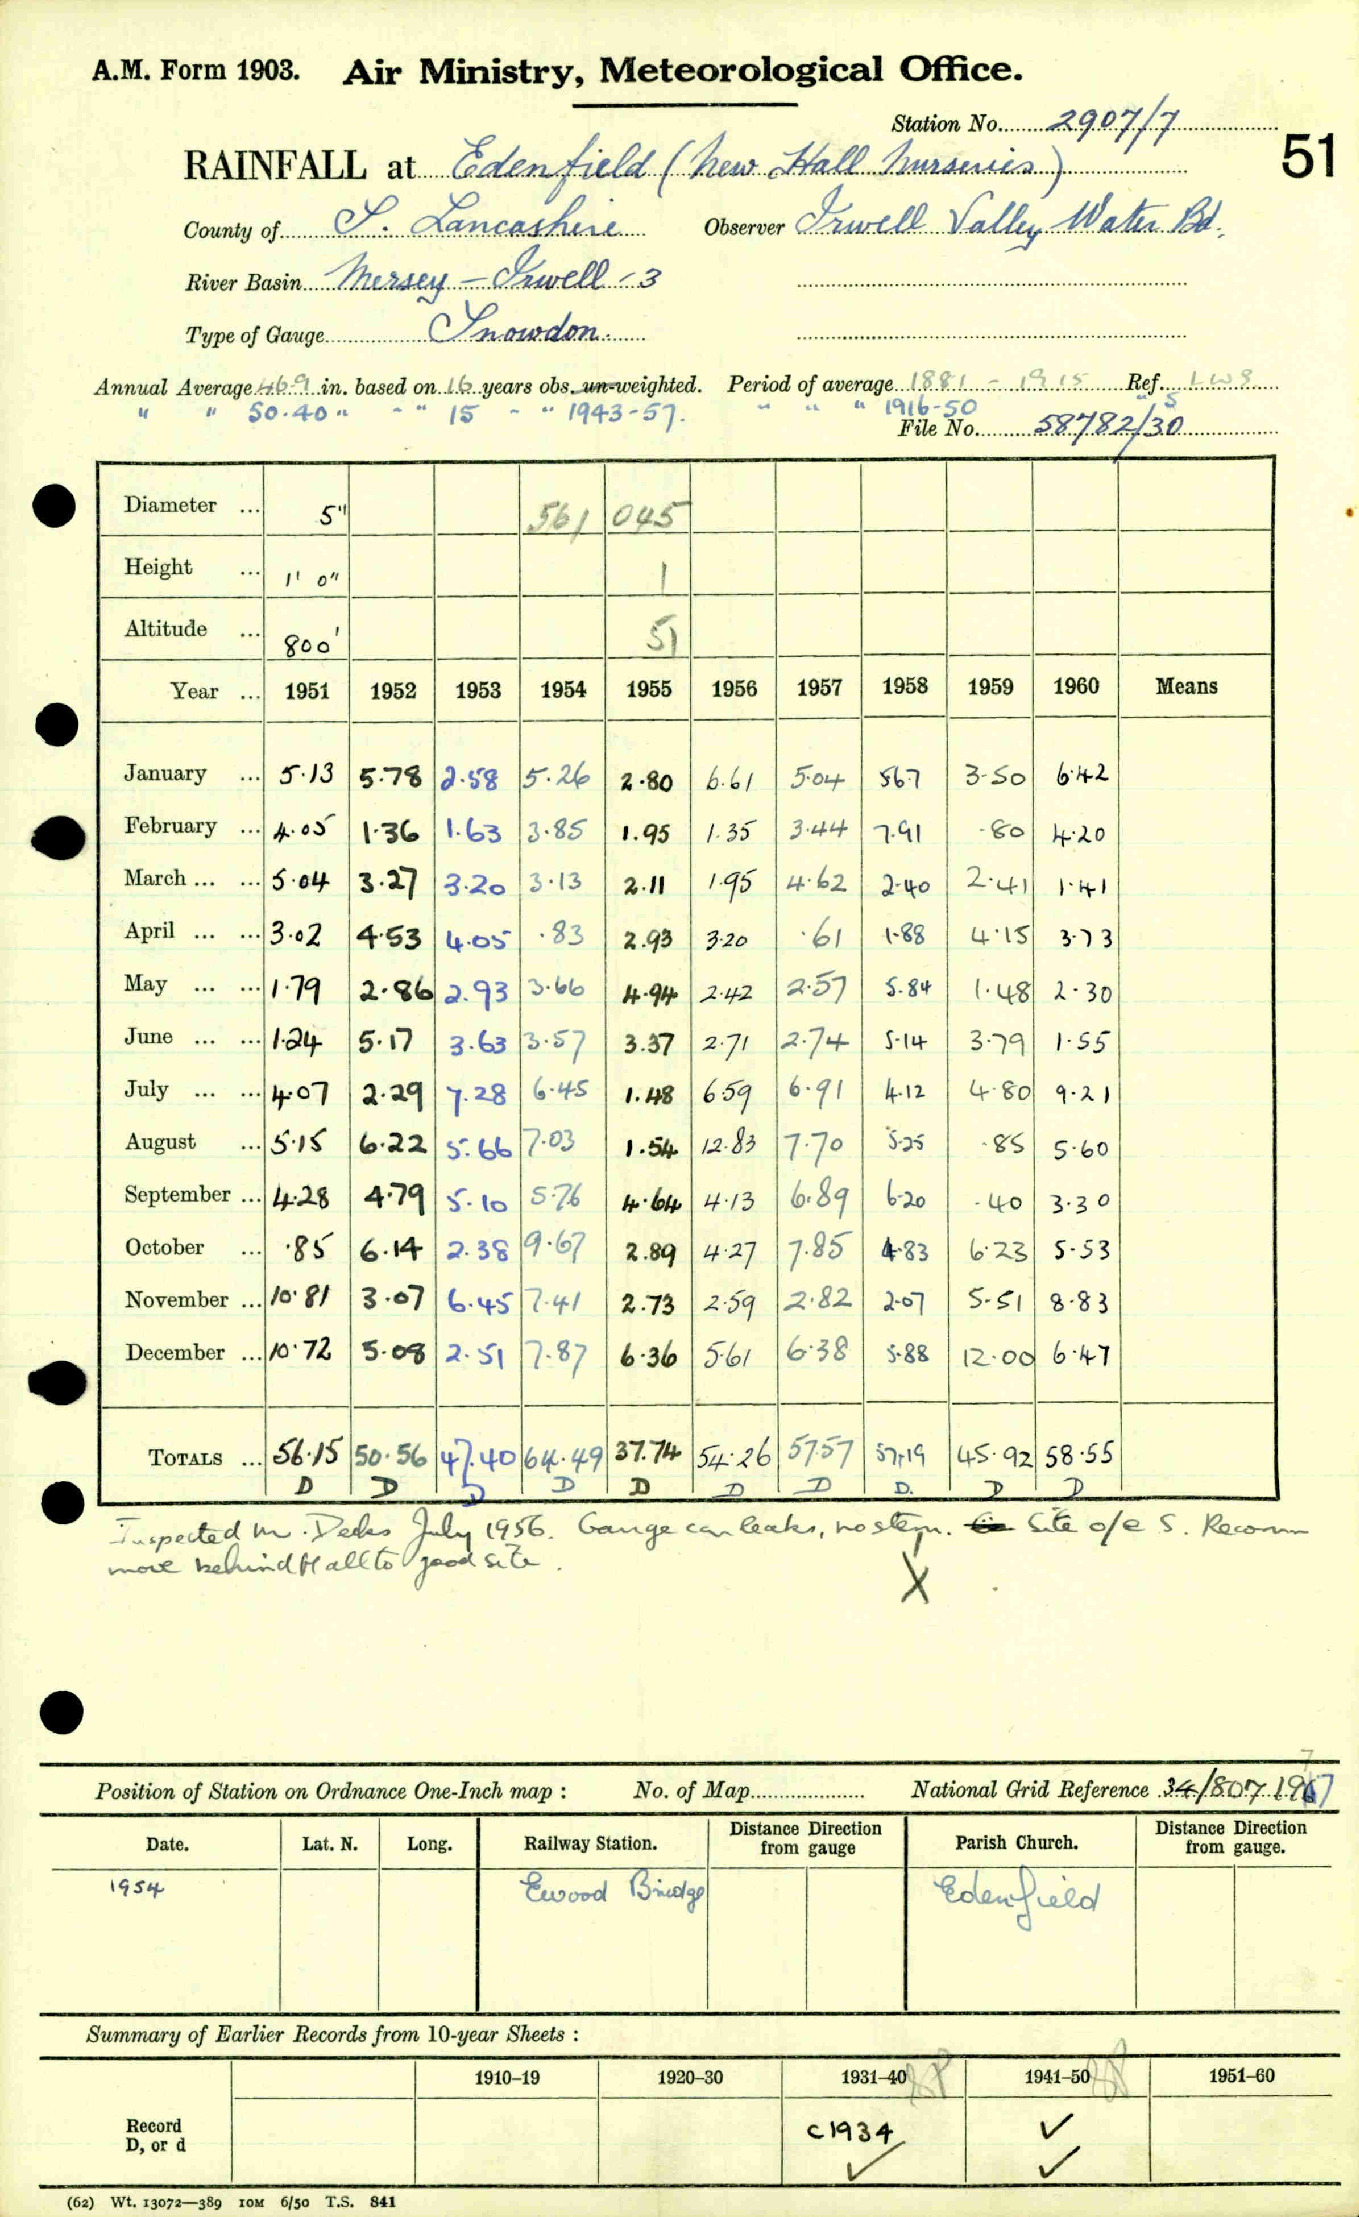 A.M. Form 1903. Air Ministry, Meteorological Office.
Station No. 2907/7
51
RAINFALL at Edenfield (New Hall Nurseries)
County of S. Lancashire Observer Irwell Valley Water Bd.
River Basin Mersey – Irwell – 3
Type of Gauge Snowdon
Annual Average 46.9 in. based on 16 years obs. un-weighted. Period of average 1881 – 1915 Ref. LW8
" " 50.40 " " " 15 " " 1943-57. " " " 1916-50 " S
File No. 58782/30
Diameter ... 5" 561 045
Height ... 1' 0" 1
Altitude ... 800' 51
Year ... 1951 1952 1953 1954 1955 1956 1957 1958 1959 1960 Means
January ... 5.13 5.78 2.58 5.26 2.80 6.61 5.04 5.67 3.50 6.42
February ... 4.05 1.36 1.63 3.85 1.95 1.35 3.44 7.91 .80 4.20
March ... ... 5.04 3.27 3.20 3.13 2.11 1.95 4.62 2.40 2.41 1.41
April ... ... 3.02 4.53 4.05 .83 2.93 3.20 .61 1.88 4.15 3.73
May ... ... 1.79 2.86 2.93 3.66 4.94 2.42 2.57 5.84 1.48 2.30
June ... ... 1.24 5.17 3.63 3.57 3.37 2.71 2.74 5.14 3.79 1.55
July ... ... 4.07 2.29 7.28 6.45 1.48 6.59 6.91 4.12 4.80 9.21
August ... 5.15 6.22 5.66 7.03 1.54 12.83 7.70 5.25 .85 5.60
September ... 4.28 4.79 5.10 5.76 4.64 4.13 6.89 6.20 .40 3.30
October ... .85 6.14 2.38 9.67 2.89 4.27 7.85 4.83 6.23 5.53
November ... 10.81 3.07 6.45 7.41 2.73 2.59 2.82 2.07 5.51 8.83
December ... 10.72 5.08 2.51 7.87 6.36 5.61 6.38 5.88 12.00 6.47
TOTALS ... 56.15 50.56 47.40 64.49 37.74 54.26 57.57 57.19 45.92 58.55
D D D D D D D D. D D
Inspected Mr. Decks July 1956. Gauge can leaks, no stem. Site o/e S. Recomm
move behind Hall to good site.
X
Position of Station on Ordnance One-Inch map : No. of Map National Grid Reference 34/807 197
Date. Lat. N. Long. Railway Station. Distance from Direction gauge Parish Church. Distance from Direction gauge.
1954 Ewood Bridge Edenfield
Summary of Earlier Records from 10-year Sheets :
1910–19 1920–30 1931–40 1941–50 1951–60
Record D, or d c1934 ✓ ✓ ✓
(62) Wt. 13072—389 10M 6/50 T.S. 841